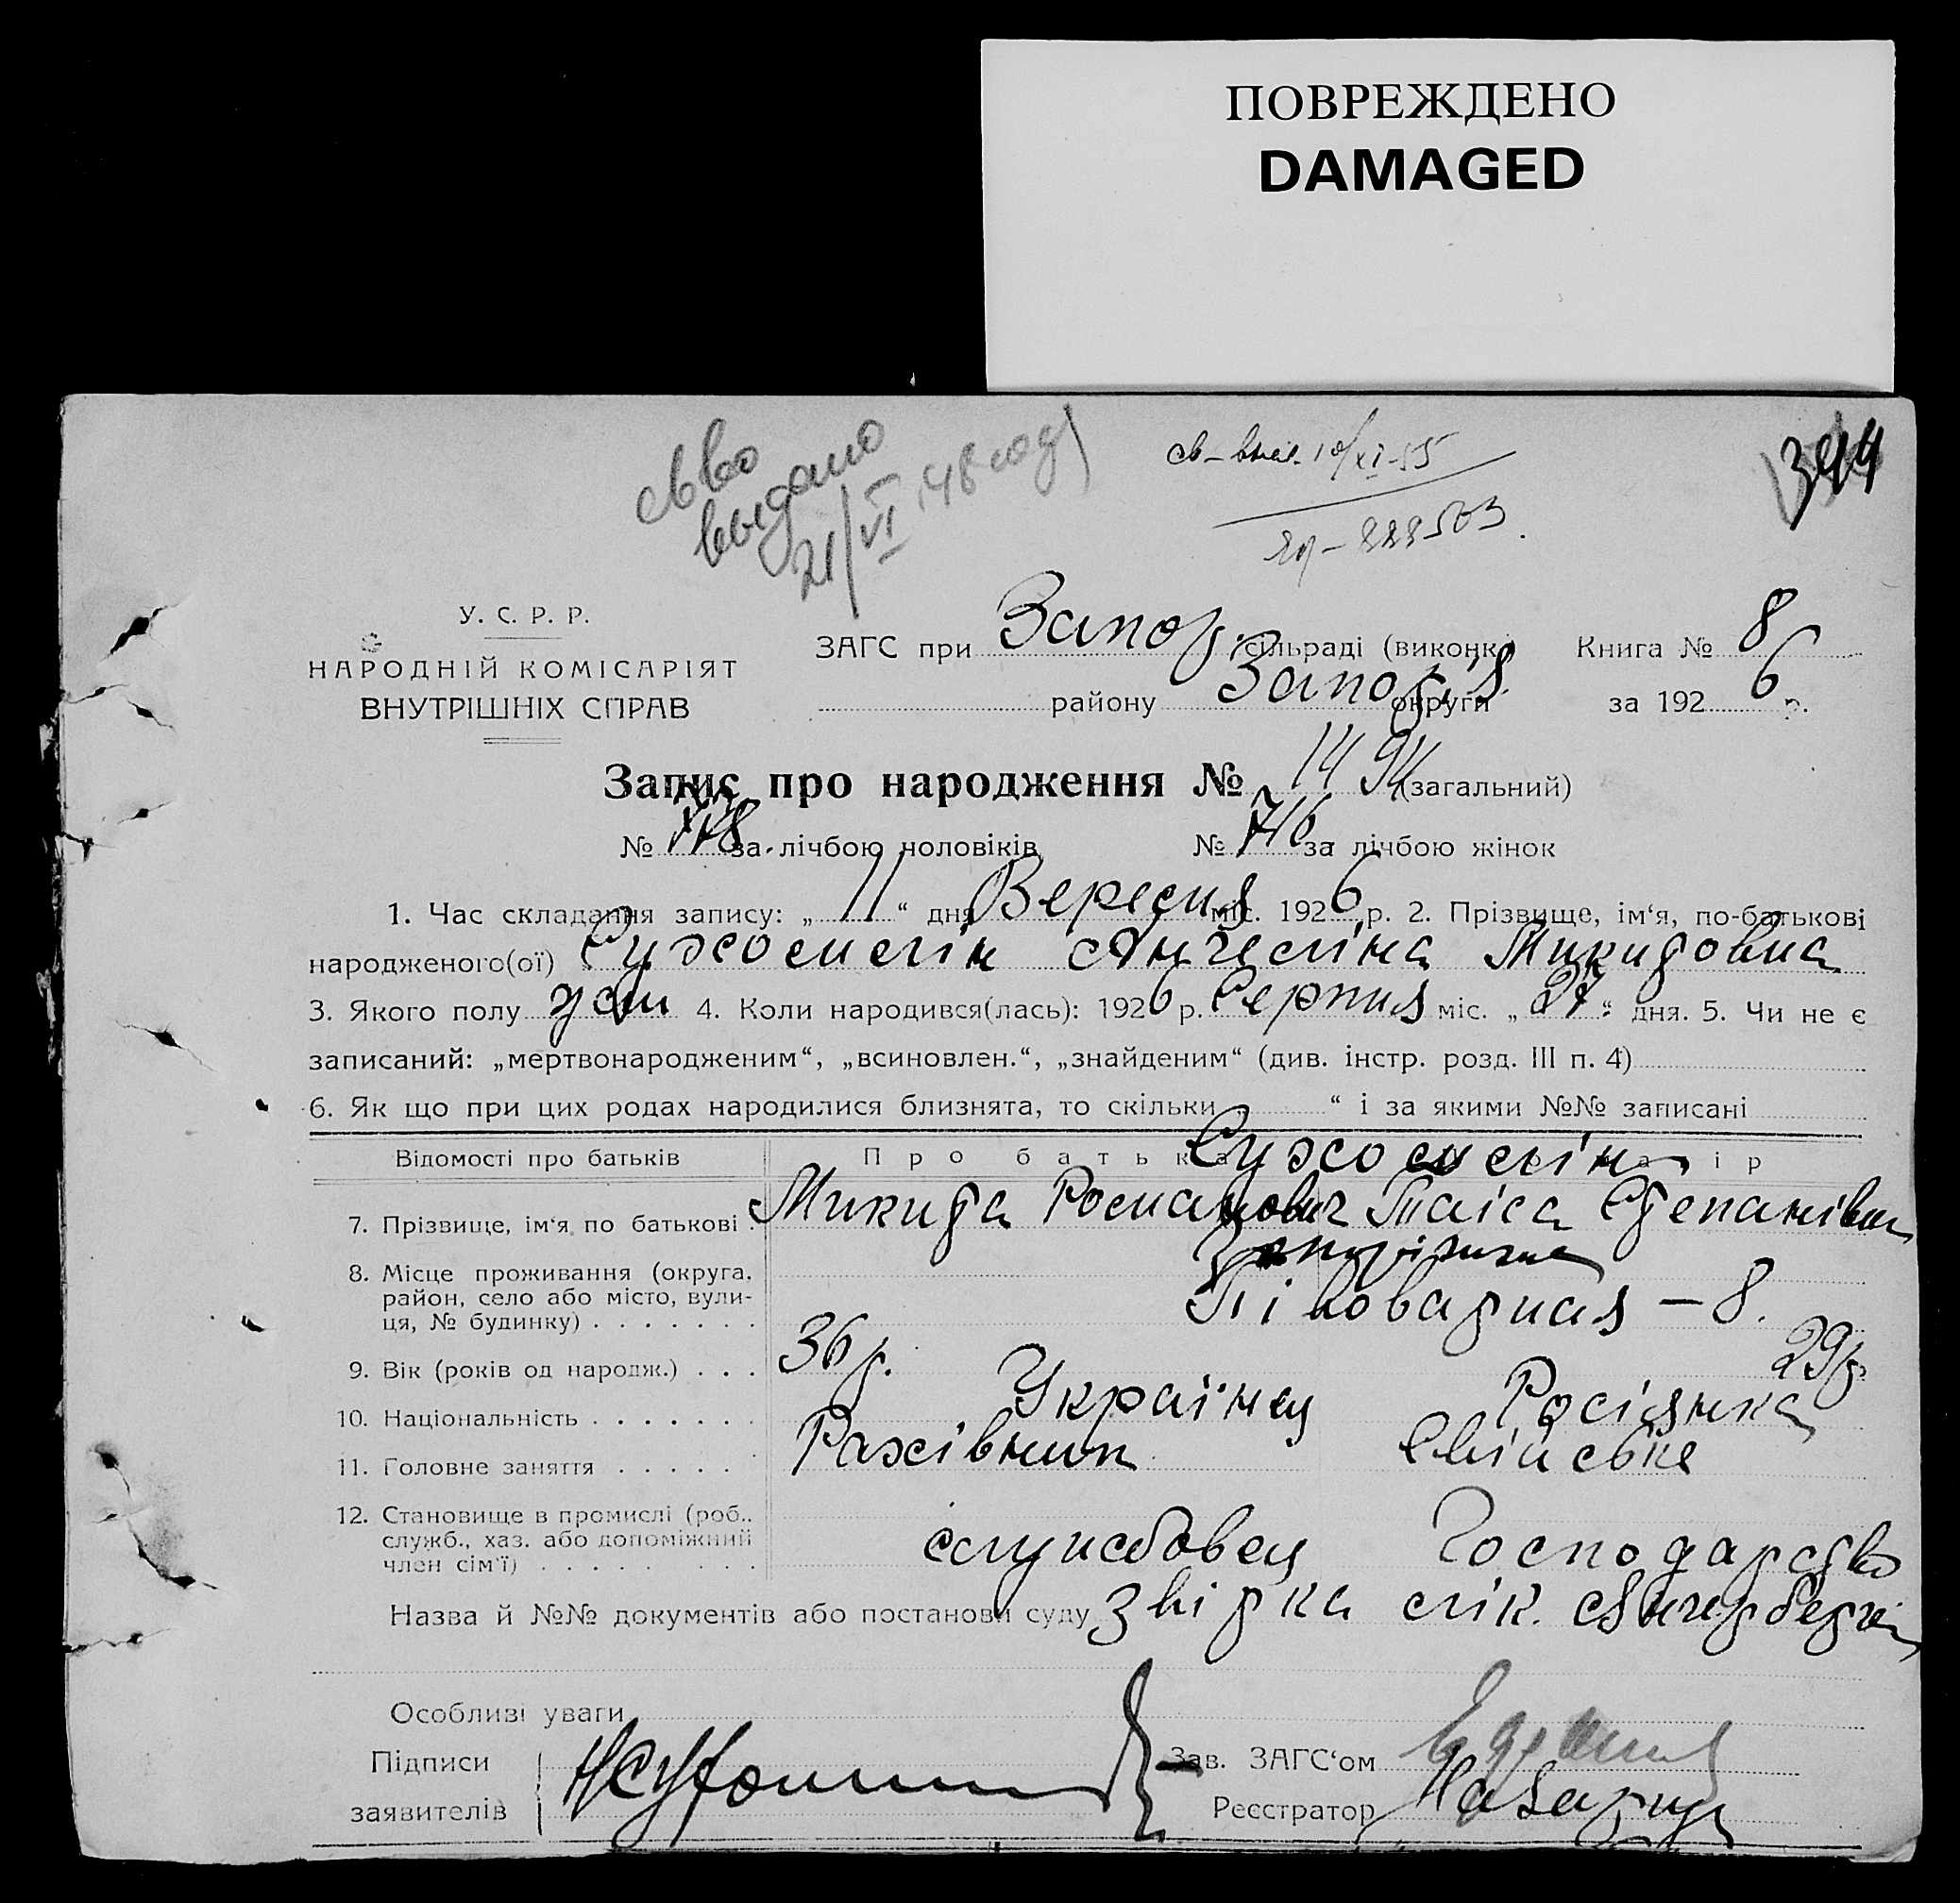 ПОВРЕЖДЕНО
DAMAGED
св-во
выдано
21/VI 48 год
св-
10/XI-55
344
У. С. Р. Р.
НАРОДНІЙ КОМІСАРІЯТ
ВНУТРІШНІХ СПРАВ
ЗАГС при Запор. сільраді (виконк.) Книга № 8
району Запор. округи за 1926 р.
Запис про народження № 1494 (загальний)
№ за лічбою чоловіків № 716 за лічбою жінок
1. Час складання запису: „11“ дня Вересня міс. 1926 р. 2. Прізвище, ім‘я, по-батькові
народженого(ої) Сухомлін Ангеліна Микитовна
3. Якого полу жін 4. Коли народився(лась): 1926 р. Серпня міс. „27“ дня. 5. Чи не є
записаний: „мертвонародженим“, „всиновлен.“, „знайденим“ (див. інстр. розд. III п. 4)
6. Як що при цих родах народилися близнята, то скільки “ і за якими №№ записані
Відомості про батьків Про батька
7. Прізвище, ім‘я по батькові Сухомлін
Микита Романович Таіса Степанівна
8. Місце проживання (округа,
район, село або місто, вули-
ця, № будинку) - 8.
9. Вік (років од народж.) 36 р. 29 р.
10. Національність Українец Росіянка
11. Головне заняття Рахівник Свійське
12. Становище в промислі (роб.,
служб., хаз. або допоміжний
член сім‘ї) службовец Господарство
Назва й №№ документів або постанови суду звірка лік.
Особливі уваги
Підписи
заявителів
Зав. ЗАГС‘ом
Реєстратор